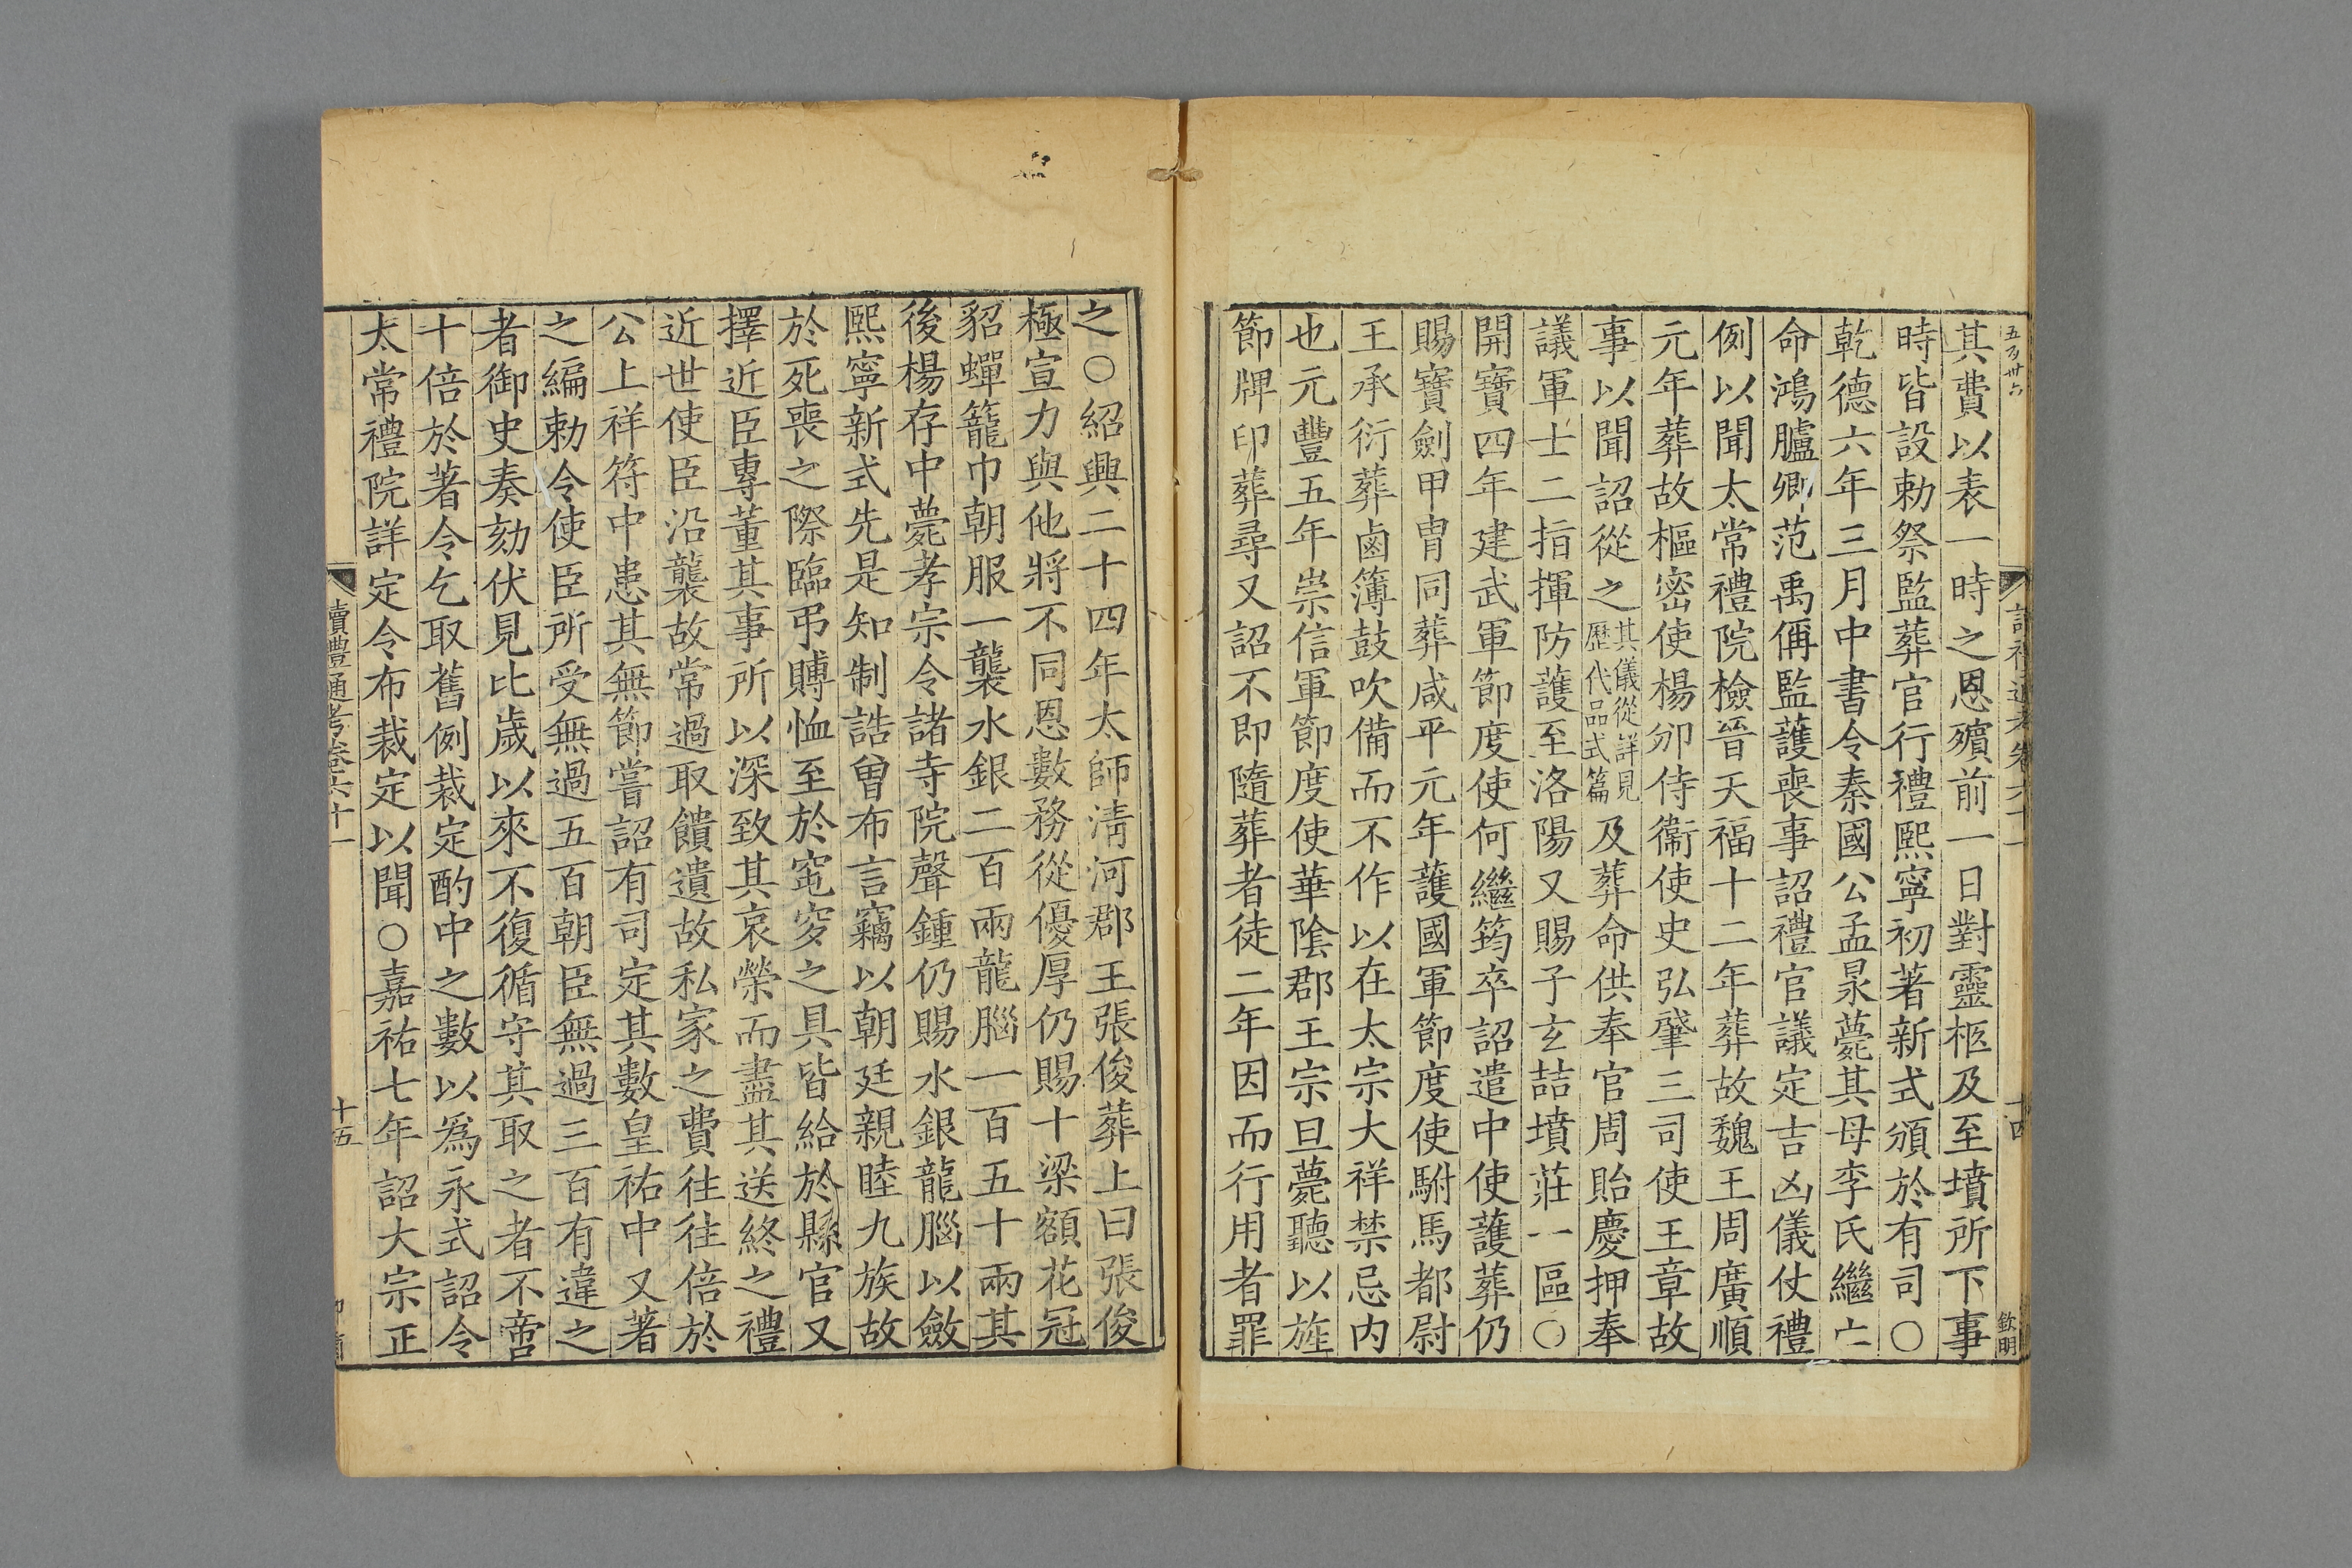 五百卅六
讀禮通考卷六十一
十四
欽明
其費以表一時之恩殯前一日對靈柩及至墳所下事
時皆設勅祭監葬官行禮熙寧初著新式頒於有司○
乾德六年三月中書令秦國公孟昶薨其母李氏繼亡
命鴻臚卿范禹偁監護喪事詔禮官議定吉凶儀仗禮
例以聞太常禮院檢晉天福十二年葬故魏王周廣順
元年葬故樞密使楊邠侍衞使史弘肇三司使王章故
事以聞詔從之其儀從詳見歷代品式篇及葬命供奉官周貽慶押奉
議軍士二指揮防護至洛陽又賜子玄喆墳莊一區○
開寶四年建武軍節度使何繼筠卒詔遣中使護葬仍
賜寶劍甲冑同葬咸平元年護國軍節度使駙馬都尉
王承衍葬鹵簿鼓吹備而不作以在太宗大祥禁忌内
也元豐五年崇信軍節度使華隂郡王宗旦薨聽以旌
節牌印葬尋又詔不即隨葬者徒二年因而行用者罪
之○紹興二十四年太師淸河郡王張俊葬上曰張俊
極宣力與他將不同恩數務從優厚仍賜十梁額花冠
貂蟬籠巾朝服一襲水銀二百兩龍腦一百五十兩其
後楊存中薨孝宗令諸寺院聲鍾仍賜水銀龍腦以斂
熙寧新式先是知制誥曾布言竊以朝廷親睦九族故
於死喪之際臨弔賻恤至於窀穸之具皆給於縣官又
擇近臣專董其事所以深致其哀榮而盡其送終之禮
近世使臣沿襲故常過取饋遺故私家之費往往倍於
公上祥符中患其無節嘗詔有司定其數皇祐中又著
之編勅令使臣所受無過五百朝臣無過三百有違之
者御史奏劾伏見比歲以來不復循守其取之者不啻
十倍於著令乞取舊例裁定酌中之數以爲永式詔令
太常禮院詳定令布裁定以聞○嘉祐七年詔大宗正
讀禮通考卷六十一
十五